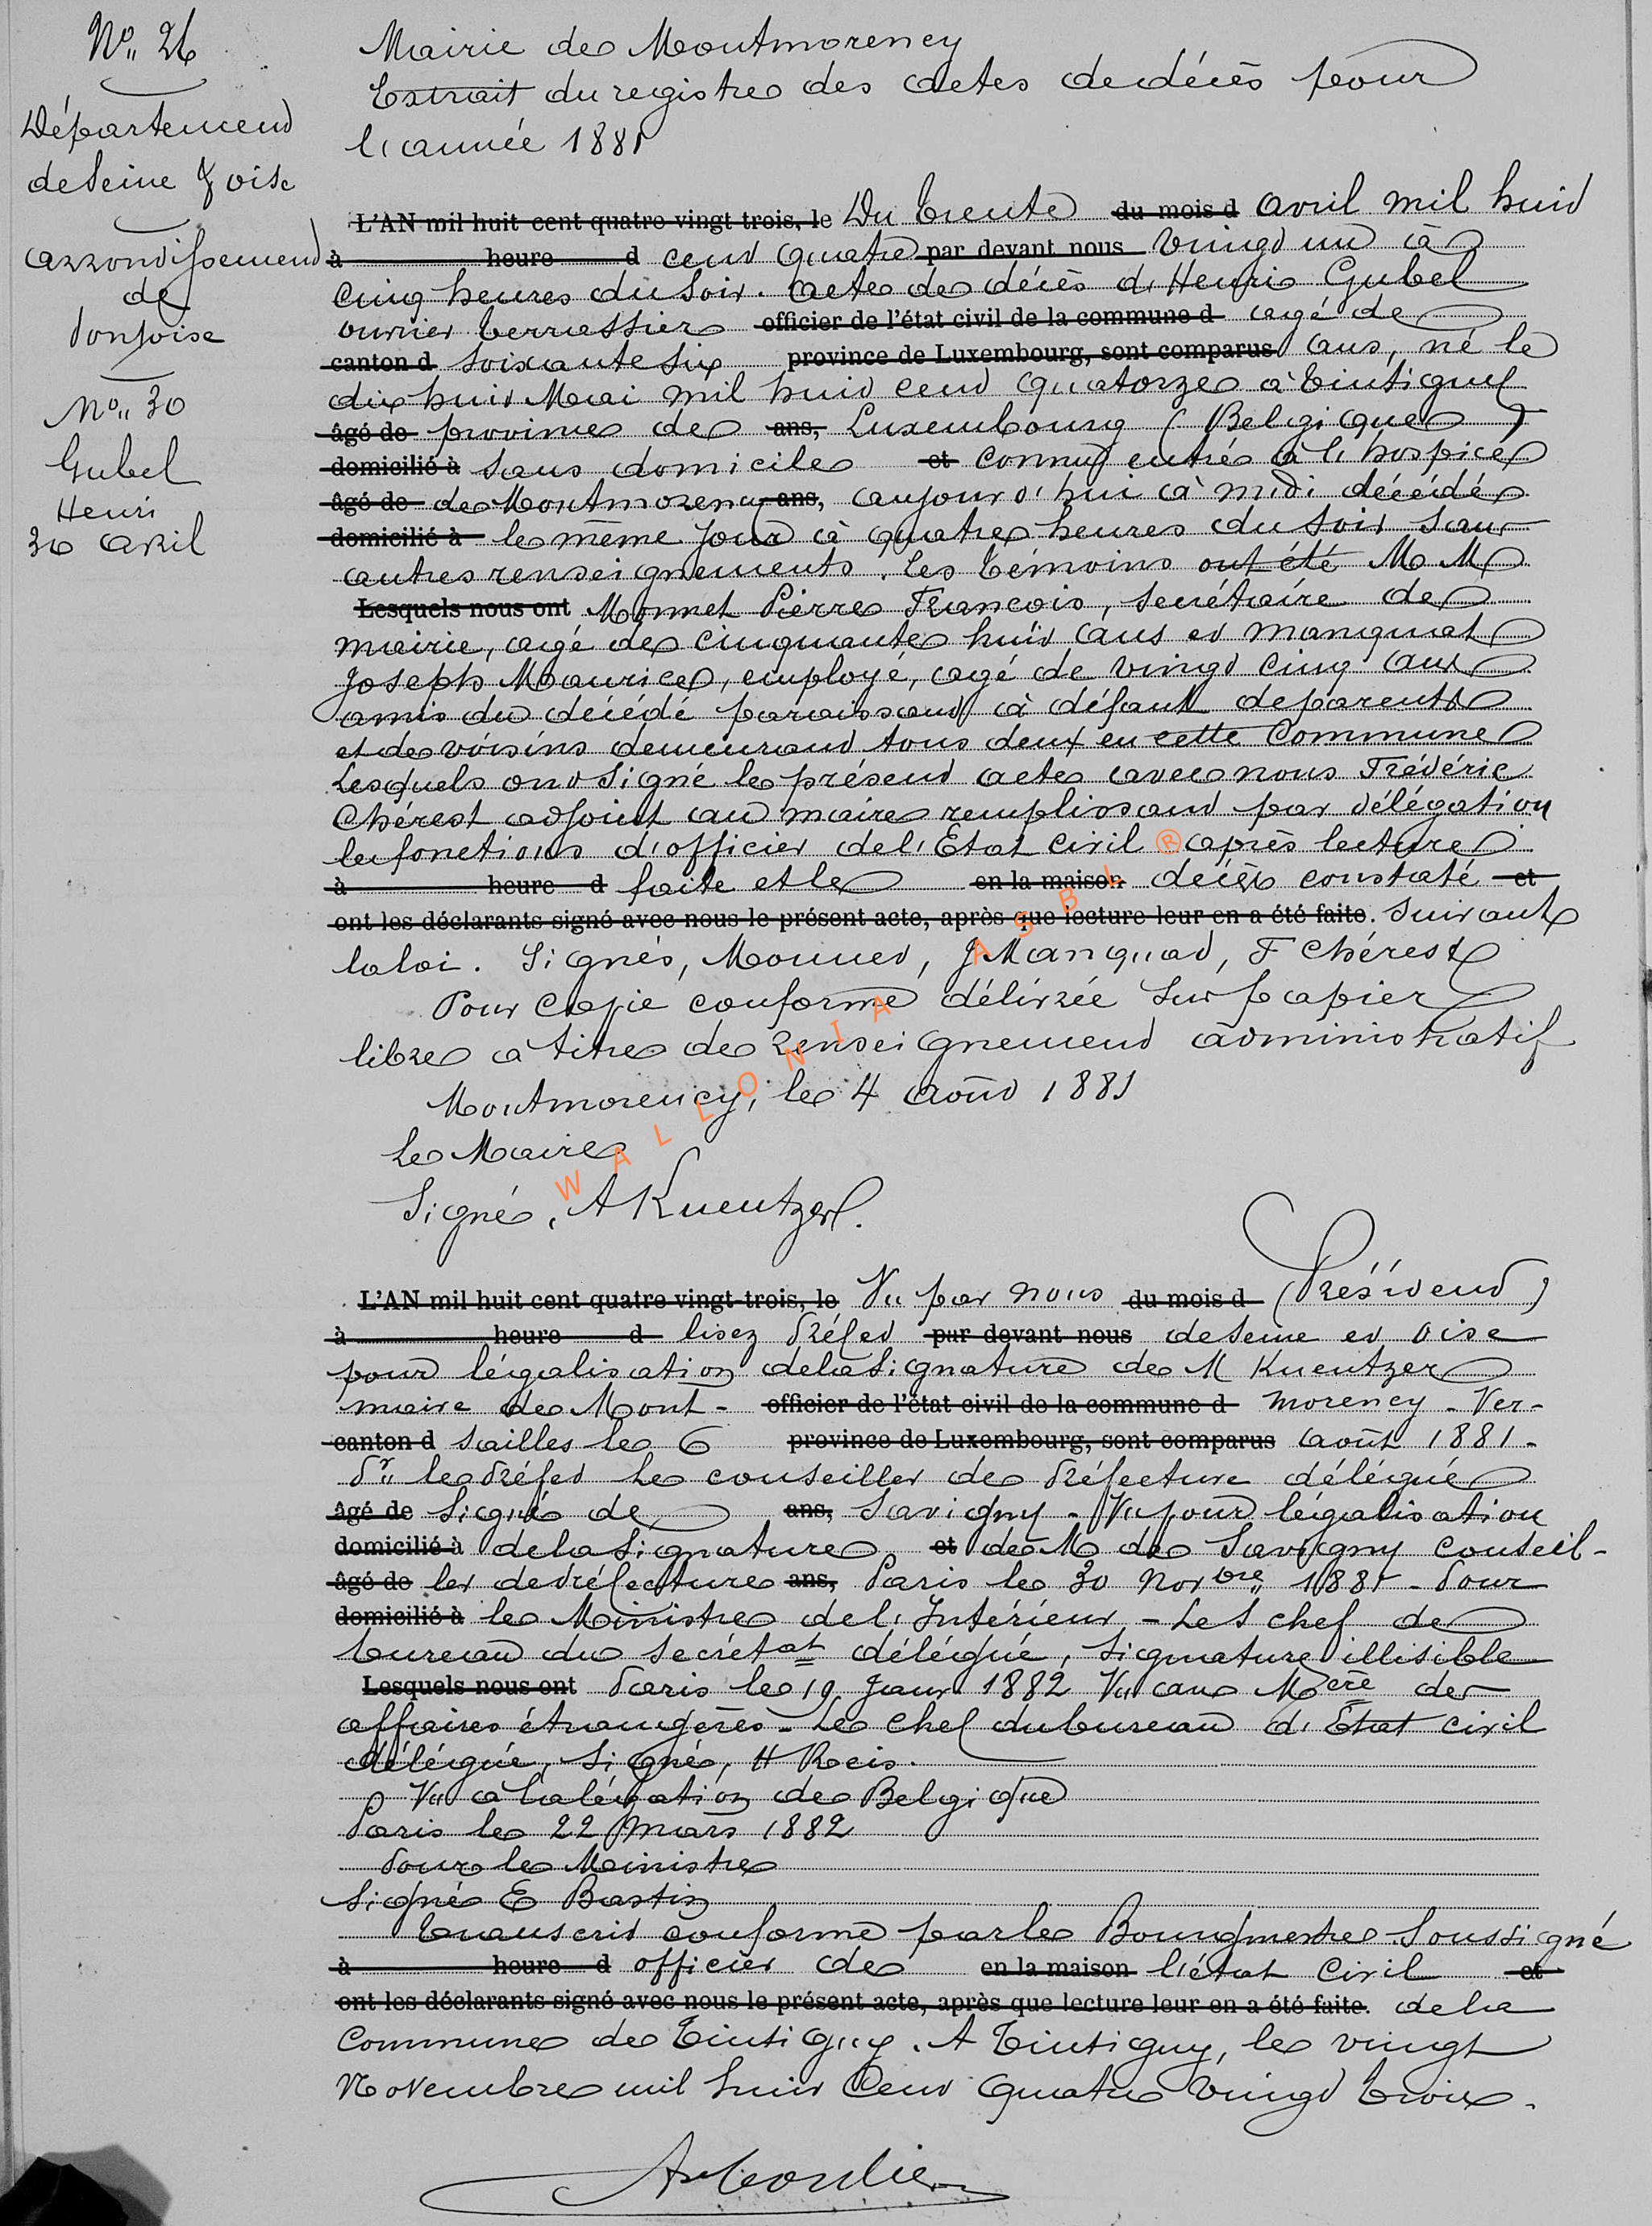 No 26
Département
de Seine & oise
arrondissement
de
Pontoise
No 30
Gubel
Henri
30 avril
Mairie de Montmorency
Extrait du registre des actes de décès pour
l'année 1881
L'AN mil huit cent quatre-vingt-trois, le Du trente du mois d avril mil huit
à heure d cent quatre par devant nous vingt un à
cinq heures du soir. acte de décès d'Henri Gubel
ouvrier terrassier officier de l'état civil de la commune d agé de
canton d soixante six province de Luxembourg, sont comparus ans, né le
dix huit Mai mil huit cent quatorze à Tintigny
âgé de province de ans, Luxembourg (Belgique)
domicilié à sans domicile et connu entré à l'hospice
âgé de de Montmorency ans, aujourd'hui à midi décédé
domicilié à le même jour à quatre heures du soir sans
autres renseignements. Les témoins ont été M M
Lesquels nous ont Monnet Pierre François, secrétaire de
mairie, agé de cinquante huit ans et Manquat
Joseph Maurice, employé, agé de vingt cinq ans
amis du décédé paraissant à défaut de parents
et de voisins demeurant tous deux en cette Commune
Lesquels ont signé le présent acte avec nous Frédéric
Chérest adjoint au maire remplissant par délégation
les fonctions d'officier de l'Etat civil après lecture
à heure d faite et le en la maison décès constaté et
ont les déclarants signé avec nous le présent acte, après que lecture leur en a été faite. suivant
la loi. Signés, Monnet, J Manquat, F Chérest
Pour Copie conforme délivrée sur papier
libre à titre de renseignement administratif
Montmorency, le 4 août 1881
Le Maire
Signé, A Kuentzer.
L'AN mil huit cent quatre vingt-trois, le Vu par nous du mois d (Président)
à heure d lisez Préfet par devant nous de Seine et Oise
pour légalisation de la signature de M Kuentzer
maire de Mont- officier de l'état civil de la commune d morency - Ver-
canton d sailles le 6 province de Luxembourg, sont comparus août 1881 -
Pr le Préfet Le conseiller de Préfecture délégué
âgé de Signé de ans, Savigny - Vu pour légalisation
domicilié à de la Signature et de M de Savigny Conseil-
âgé de ler de Préfecture ans, Paris le 30 Novbre 1881 - Pour
domicilié à le Ministre de l'Intérieur - Le S chef de
bureau du secrétat délégué, signature illisible
Lesquels nous ont Paris le 19 Janv. 1882 Vu aux Mère des
affaires étrangères - Le Chef du bureau d'Etat civil
délégué, Signé, H Reis.
Vu à la légation de Belgique
Paris le 22 Mars 1882
Pour le Ministre
Signé E Bastin
Transcrit conforme par le Bourgmestre Soussigné
à heure d officier de en la maison l'état Civil et
ont les déclarants signé avec nous le présent acte, après que lecture leur en a été faite. de la
Commune de Tintigny. A Tintigny, le vingt
Novembre mil huit Cent quatre vingt trois.
WALLONIA ASBL ®